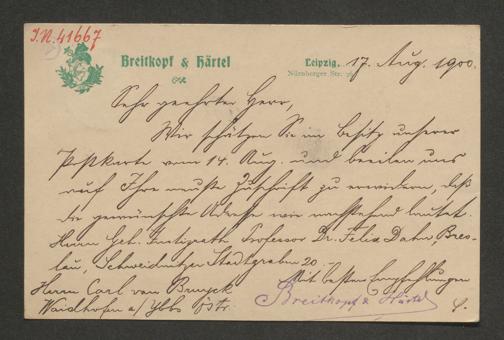 I.N. 41667
Breitkopf & Härtel
Leipzig, 17. Aug. 1900.
Nürnberger Str.
Sehr geehrter Herr,
Wir schätzen Sie im Besitz unserer
Postkarte vom 14. Aug. und beeilen uns
auf Ihre neuste Zuschrift zu erwidern, daß
die gewünschte Adresse wie nachstehend lautet.
Herrn Geh. Justizrath Professor Dr. Felix Dahn Bres-
lau, Schweidnitzer Stadtgraben 20.
Mit besten Empfehlungen
Herrn Carl von
Waidhofen a/Ybbs Östr.
Breitkopf & Härtel